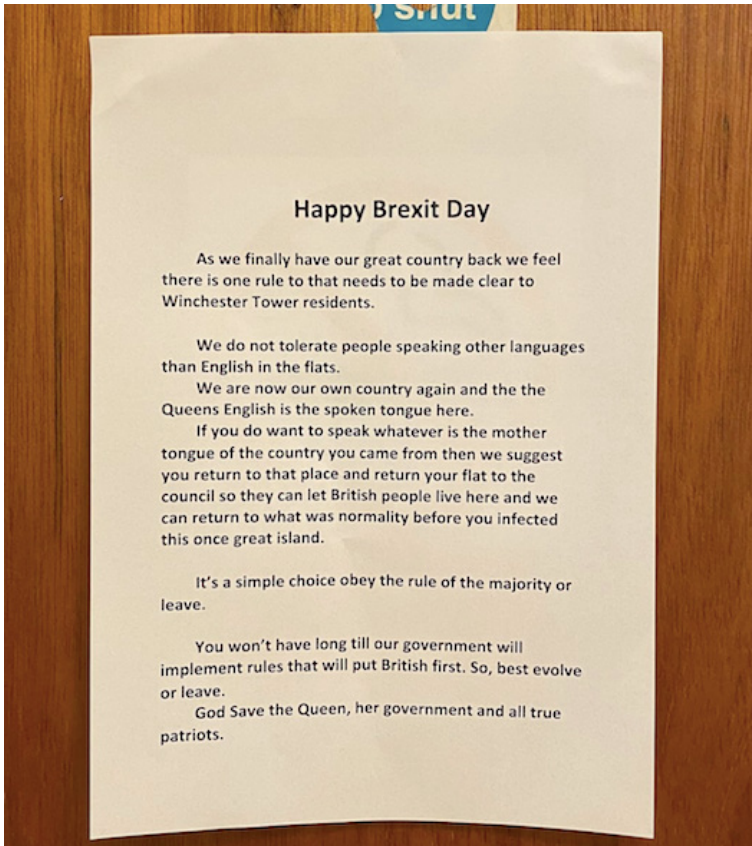 shut
Happy Brexit Day
As we finally have our great country back we feel
there is one rule to that needs to be made clear to
Winchester Tower residents.
We do not tolerate people speaking other languages
than English in the flats.
We are now our own country again and the the
Queens English is the spoken tongue here.
If you do want to speak whatever is the mother
tongue of the country you came from then we suggest
you return to that place and return your flat to the
council so they can let British people live here and we
can return to what was normality before you infected
this once great island.
It's a simple choice obey the rule of the majority or
leave.
You won't have long till our government will
implement rules that will put British first. So, best evolve
or leave.
God Save the Queen, her government and all true
patriots.